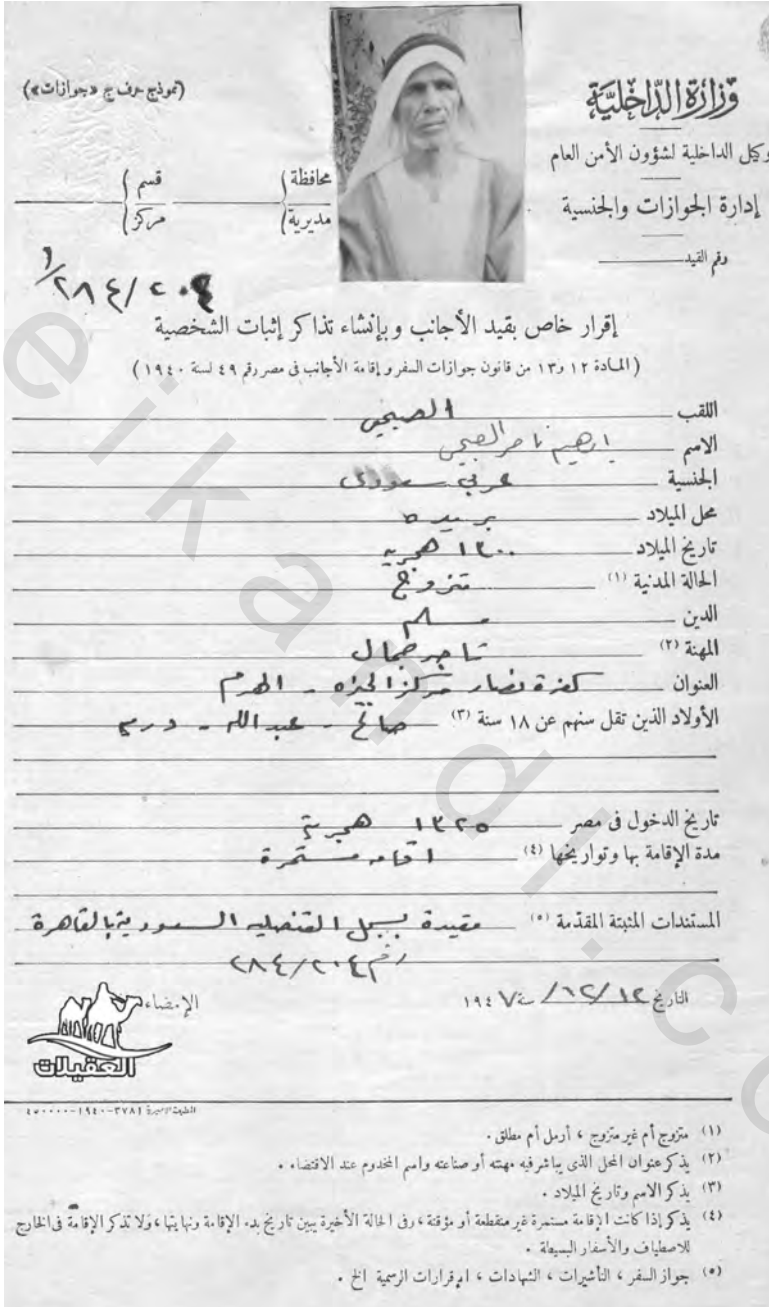 وزارة الداخلية
(نموذج حرف ج «جوازات»)
وكيل الداخلية لشؤون الأمن العام
إدارة الجوازات والجنسية
محافظة
مديرية
قسم
مركز
رقم القيد
٢٨٤/٢٠٤
إقرار خاص بقيد الأجانب وبإنشاء تذاكر إثبات الشخصية
(المادة ١٢ و١٣ من قانون جوازات السفر وإقامة الأجانب فى مصر رقم ٤٩ لسنة ١٩٤٠)
اللقب الصبحى
الاسم ابراهيم ناصر الصبحى
الجنسية عربى سعودى
محل الميلاد بريده
تاريخ الميلاد ١٣٠٠ هجريه
الحالة المدنية (١) متزوج
الدين مسلم
المهنة (٢) تاجر جمال
العنوان كفرة نصار مركز الجيزه - الهرم
الأولاد الذين تقل سنهم عن ١٨ سنة (٣) صالح - عبد الله -
تاريخ الدخول فى مصر ١٣٢٥ هجرية
مدة الإقامة بها وتواريخها (٤) اقامه مستمرة
المستندات المثبتة المقدمة (٥) مقيدة بسجل القنصليه السعودية بالقاهرة
رقم ٢٨٤/٢٠٤
التاريخ ١٢/١٢/ سنة ١٩٤٧
الإمضاء
العقيلات
المطبعة الأميرية ٣٧٨١-١٩٤٠-٤٥٠٠٠٠
(١) متزوج أم غير متزوج ، أرمل أم مطلق .
(٢) يذكر عنوان المحل الذى يباشر فيه مهنته أو صناعته واسم المخدوم عند الاقتضاء .
(٣) يذكر الاسم وتاريخ الميلاد .
(٤) يذكر إذا كانت الإقامة مستمرة غير منقطعة أو مؤقتة ، وفى الحالة الأخيرة يبين تاريخ بدء الإقامة ونهايتها ، ولا تذكر الإقامة فى الخارج
للاصطياف والأسفار البسيطة .
(٥) جواز السفر ، التأشيرات ، الشهادات ، الإقرارات الرسمية الخ .